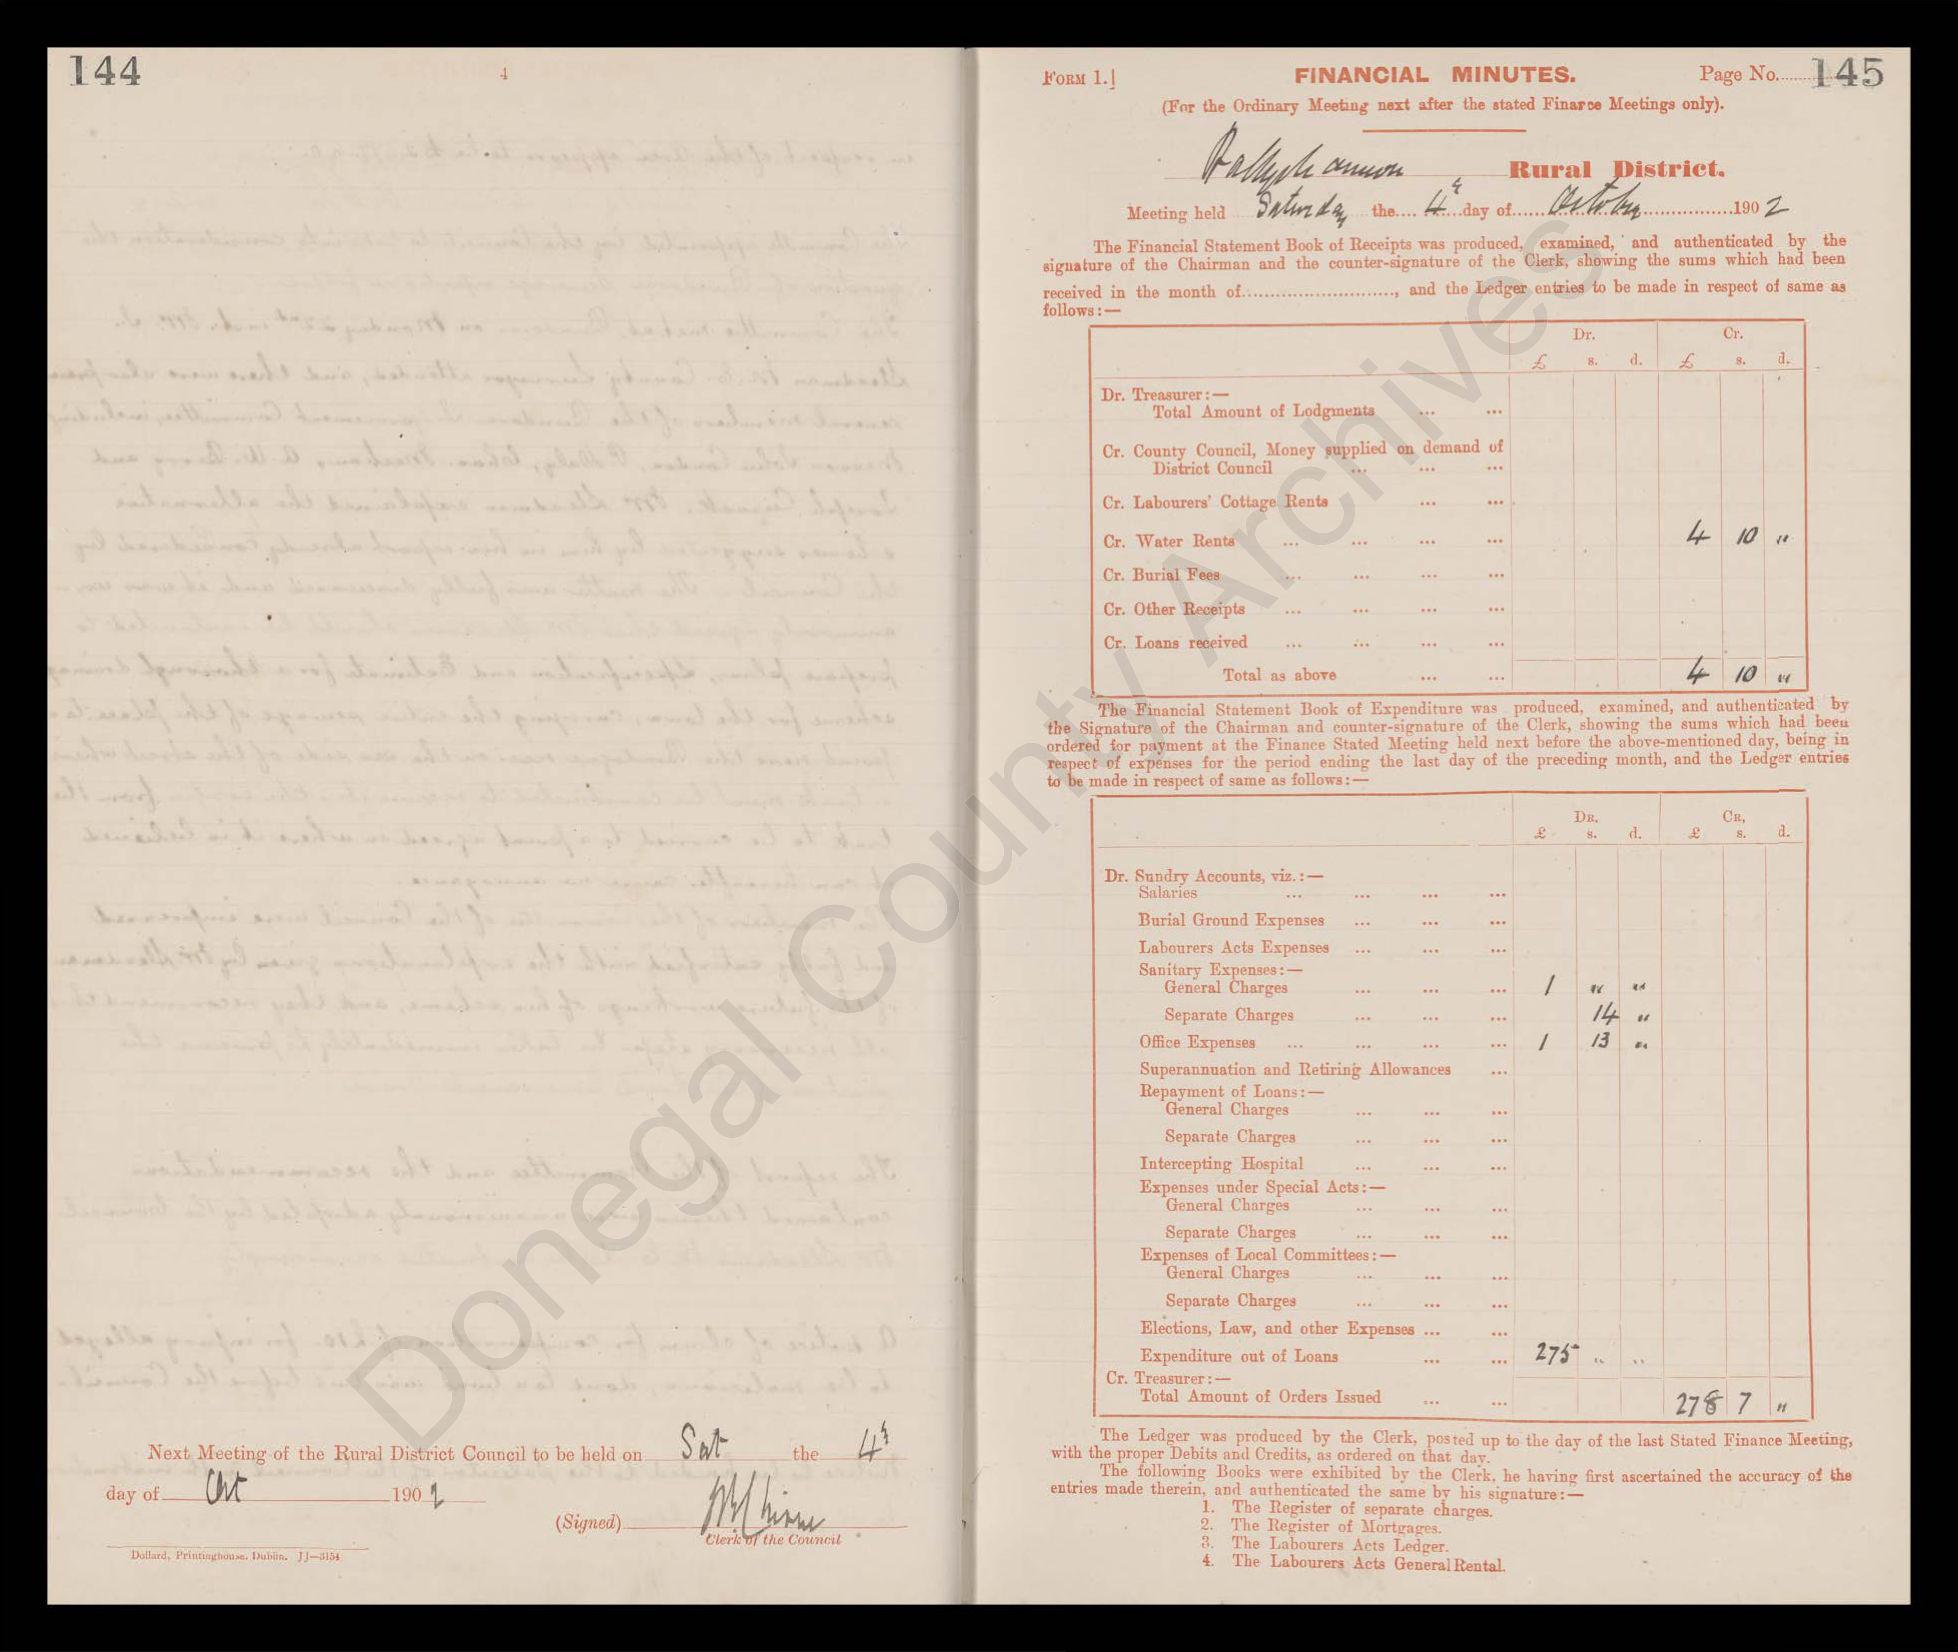 144
4
Next Meeting of the Rural District Council to be held on Sat the 4th
day of Oct 1902
(Signed)
Clerk of the Council
Dollard, Printinghouse, Dublin. JJ—3154
FORM 1.]
FINANCIAL MINUTES.
Page No. 145
(For the Ordinary Meeting next after the stated Finance Meetings only).
Ballyshannon Rural District.
Meeting held Saturday the 4th day of October 1902
The Financial Statement Book of Receipts was produced, examined, and authenticated by the
signature of the Chairman and the counter-signature of the Clerk, showing the sums which had been
received in the month of............................, and the Ledger entries to be made in respect of same as
follows:—
Dr. Cr.
£ s. d. £ s. d.
Dr. Treasurer:—
Total Amount of Lodgments ... ...
Cr. County Council, Money supplied on demand of
District Council ... ... ...
Cr. Labourers' Cottage Rents ... ...
Cr. Water Rents ... ... ... ... 4 10 "
Cr. Burial Fees ... ... ... ...
Cr. Other Receipts ... ... ... ...
Cr. Loans received ... ... ... ...
Total as above ... ... 4 10 "
The Financial Statement Book of Expenditure was produced, examined, and authenticated by
the Signature of the Chairman and counter-signature of the Clerk, showing the sums which had been
ordered for payment at the Finance Stated Meeting held next before the above-mentioned day, being in
respect of expenses for the period ending the last day of the preceding month, and the Ledger entries
to be made in respect of same as follows:—
DR. CR,
£ s. d. £ s. d.
Dr. Sundry Accounts, viz.:—
Salaries ... ... ... ...
Burial Ground Expenses ... ... ...
Labourers Acts Expenses ... ... ...
Sanitary Expenses:—
General Charges ... ... ... 1 " "
Separate Charges ... ... ... 14 "
Office Expenses ... ... ... ... 1 13 "
Superannuation and Retiring Allowances ...
Repayment of Loans:—
General Charges ... ... ...
Separate Charges ... ... ...
Intercepting Hospital ... ... ...
Expenses under Special Acts:—
General Charges ... ... ...
Separate Charges ... ... ...
Expenses of Local Committees:—
General Charges ... ... ...
Separate Charges ... ... ...
Elections, Law, and other Expenses ... ...
Expenditure out of Loans ... ... 275 " "
Cr. Treasurer:—
Total Amount of Orders Issued ... ... 278 7 "
The Ledger was produced by the Clerk, posted up to the day of the last Stated Finance Meeting,
with the proper Debits and Credits, as ordered on that day.
The following Books were exhibited by the Clerk, he having first ascertained the accuracy of the
entries made therein, and authenticated the same by his signature:—
1. The Register of separate charges.
2. The Register of Mortgages.
3. The Labourers Acts Ledger.
4. The Labourers Acts General Rental.
Donegal County Archives